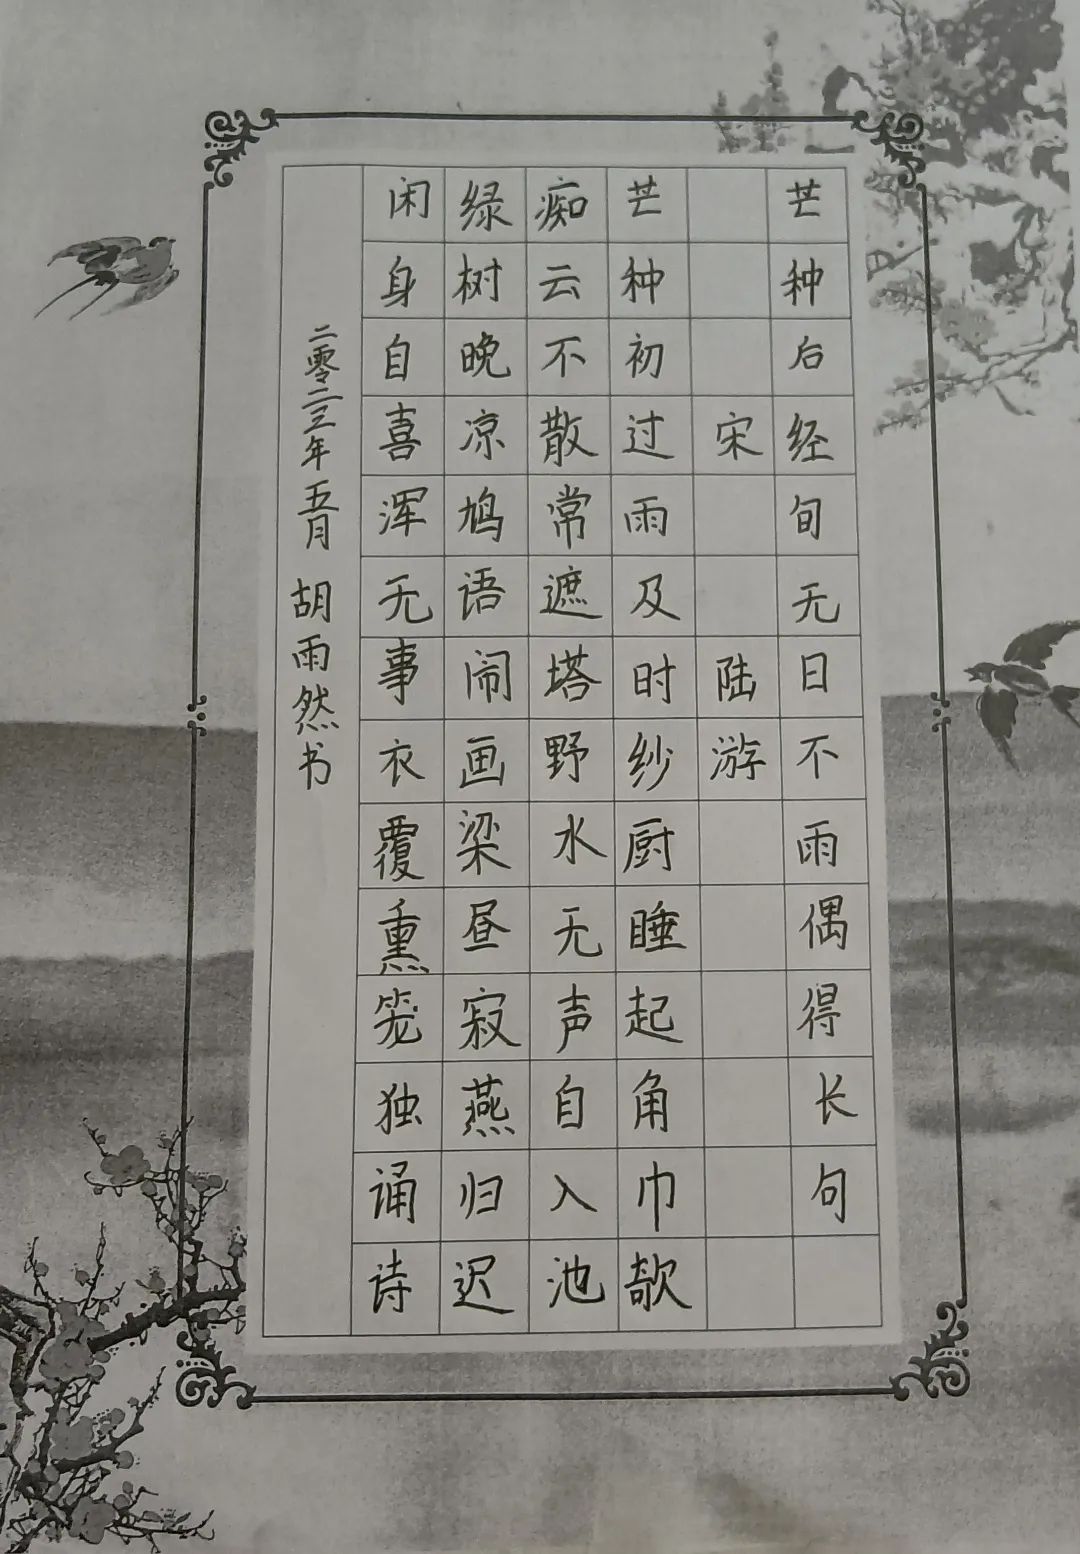 芒种后经旬无日不雨偶得长句
宋 陆游
芒种初过雨及时纱厨睡起角巾欹
痴云不散常遮塔野水无声自入池
绿树晚凉鸠语闹画梁昼寂燕归迟
闲身自喜浑无事衣覆熏笼独诵诗
二零二三年五月 胡雨然书